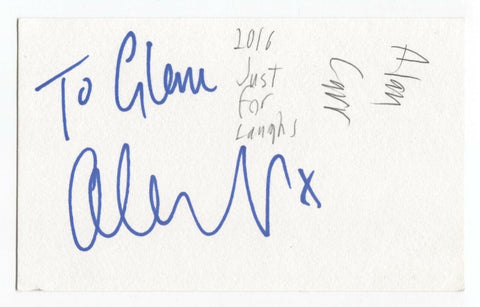 To Glenn
Alan x
2016
Just
For
Laughs
Alan
Carr